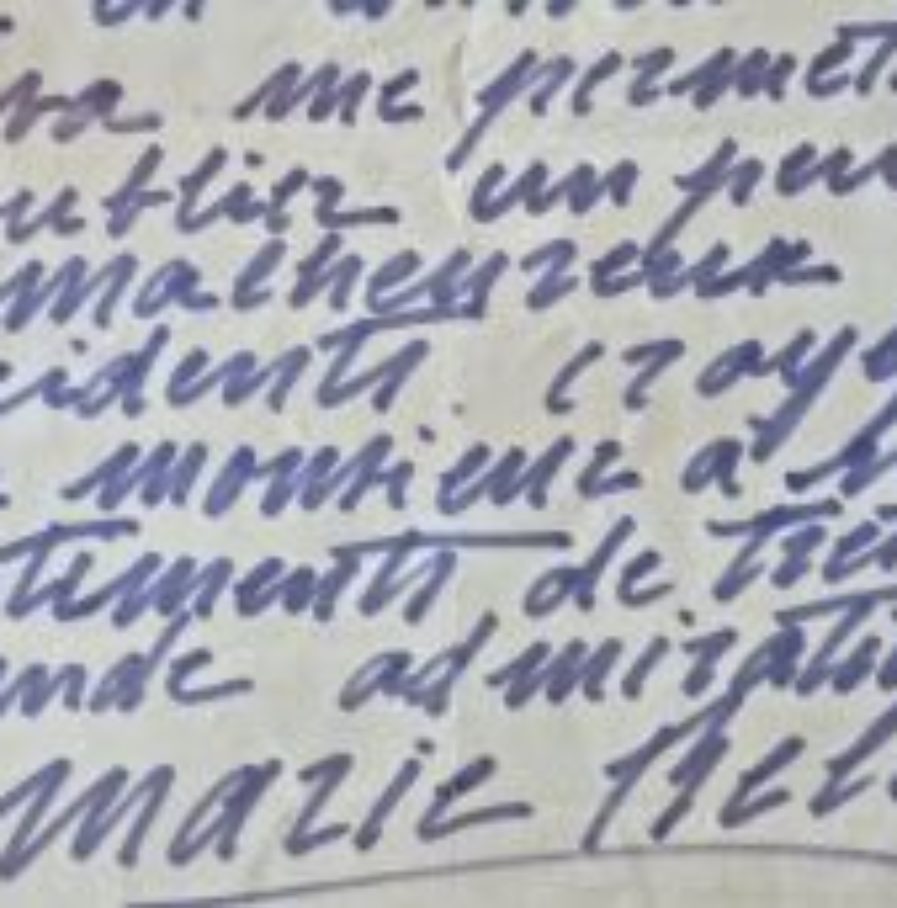 va me permett
ublier un peu
malheureux
cidents. croye
monsieur à
timents de trè
ande admirati
marie